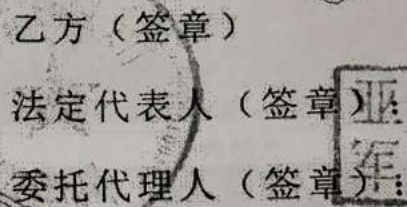 乙方（签章）
法定代表人（签章）：
委托代理人（签章）：
亚军